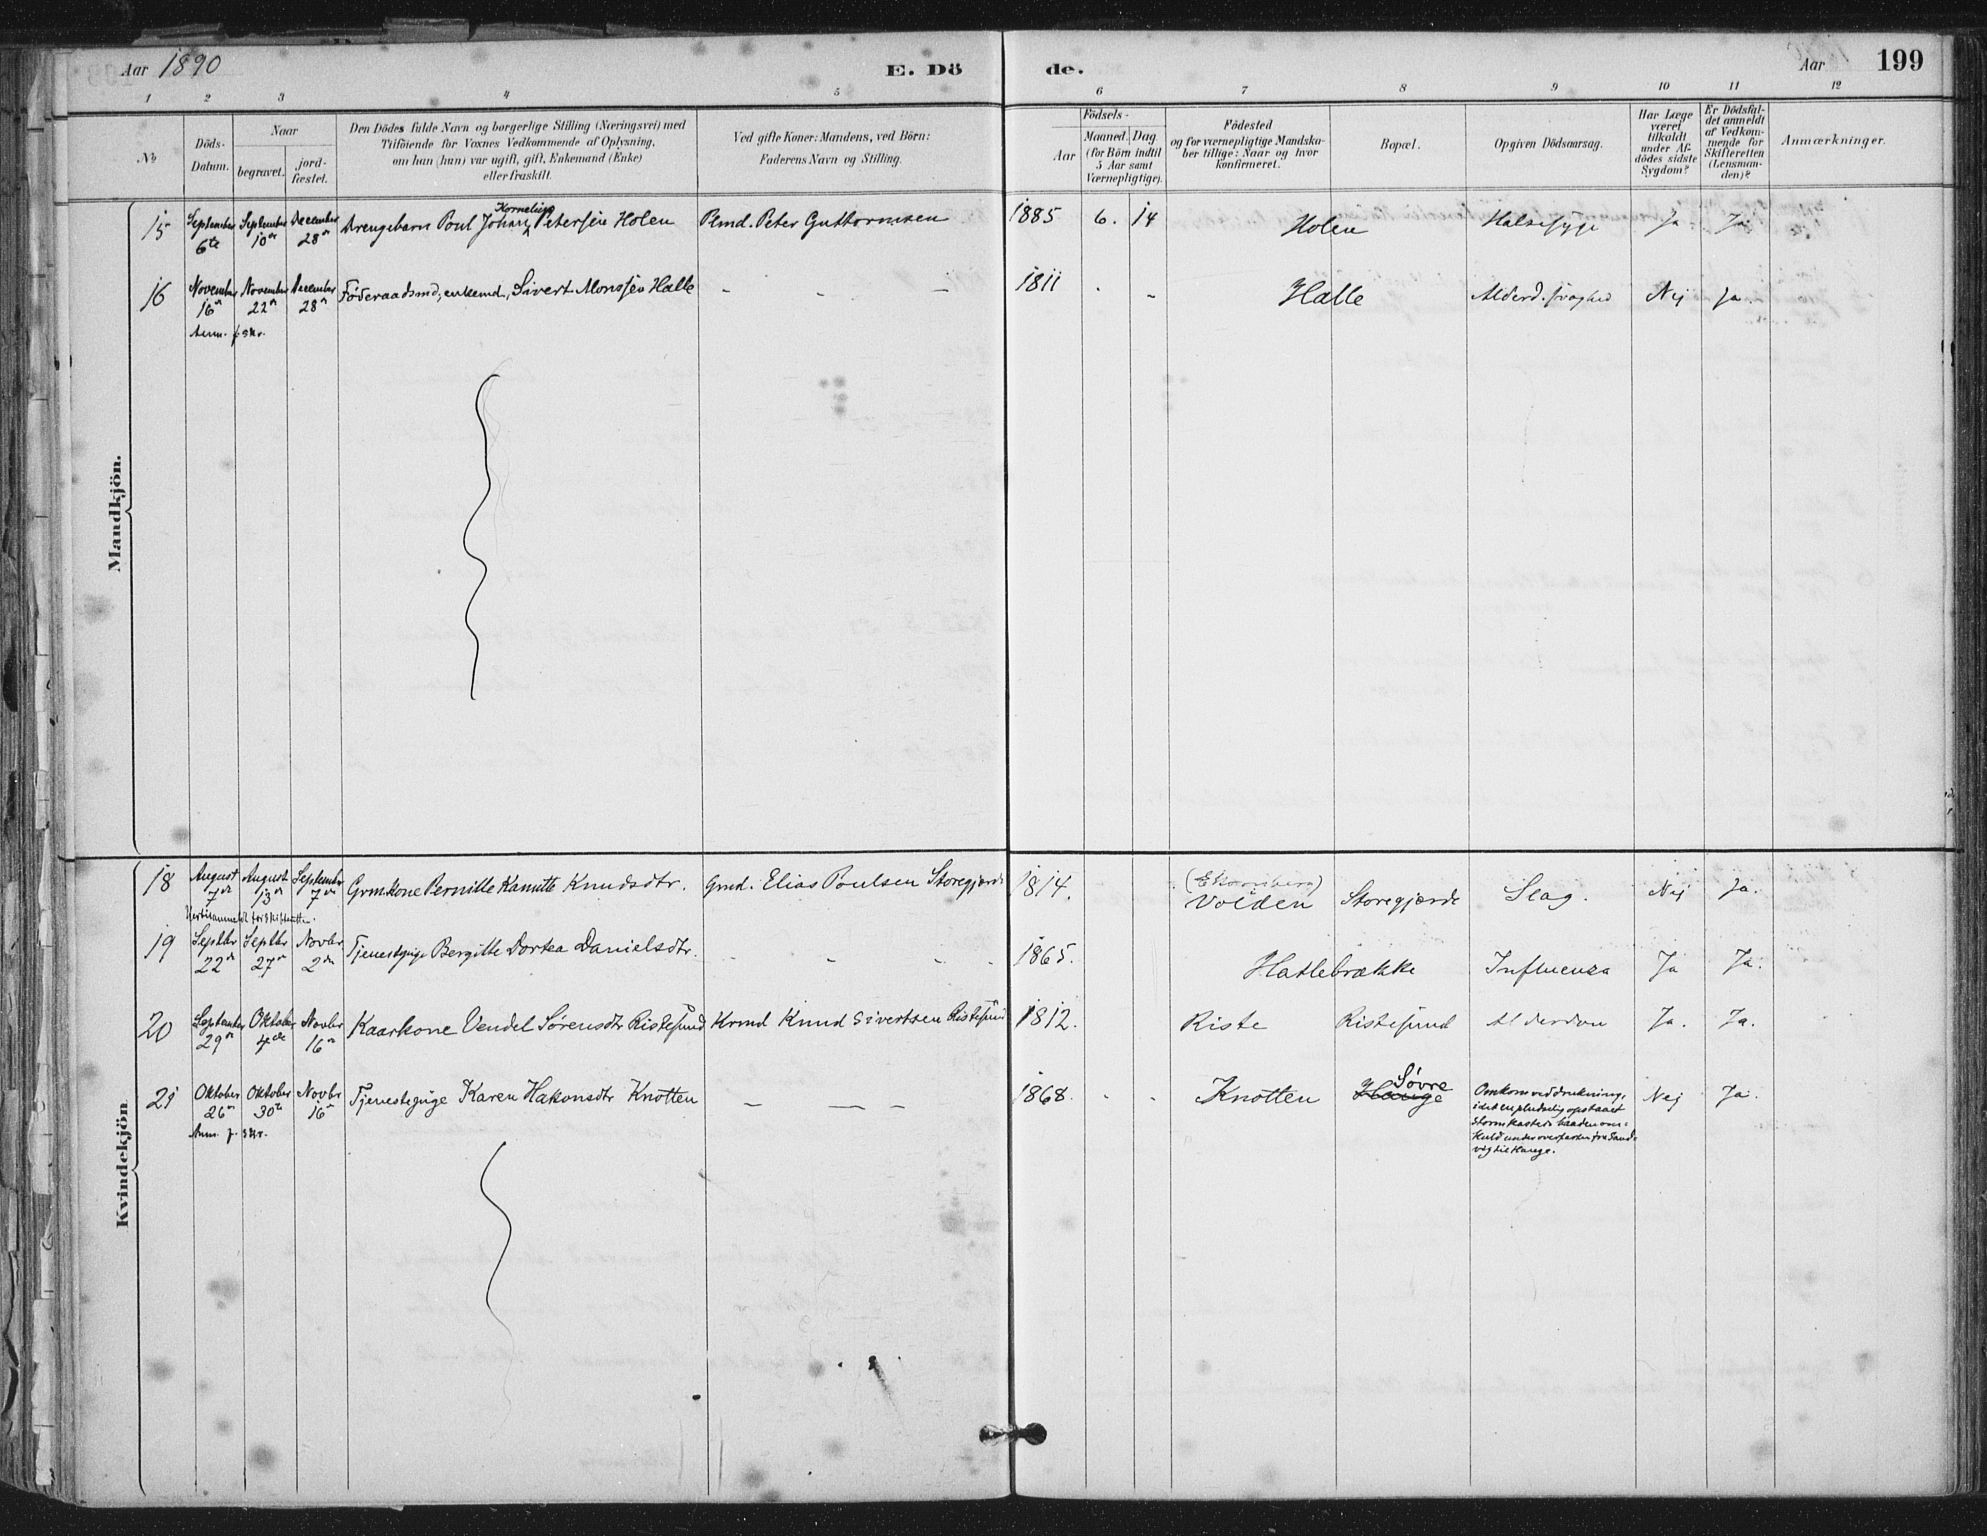 Aar 1890 E. Dö de. Aar 199
1 2 3 4 5 6 7 8 9 10 11 12
No
Döds-
Datum.
Naar
begravet.
jord-
fæstet.
Den Dödes fulde Navn og borgerlige Stilling (Næringsvei) med
Tilföiende for Voxnes Vedkommende af Oplysning,
om han (hun) var ugift, gift, Enkemand (Enke)
eller fraskilt.
Ved gifte Koner: Mandens, ved Börn:
Faderens Navn og Stilling.
Födsels-
Aar
Maaned.
Dag
(for Börn indtil
5 Aar samt
Værnepligtige).
Födested
og for værnepligtige Mandska-
ber tillige: Naar og hvor
konfirmeret.
Bopæl.
Opgiven Dödsaarsag.
Har Læge
været
tilkaldt
under Af-
dödes sidste
Sygdom?
Er Dödsfal-
det anmeldt
af Vedkom-
mende for
Skifteretten
(Lensman-
den)?
Anmærkninger.
Mandkjön.
Kornelius
15 September September December Drengebarn Poul Johan Petersen Holen Pmd. Peter Guttormsen 1885 6. 14 Holen Halssyge Ja. Ja.
6te 10de 28de
16 November November December Föderaadsmd, enkemd, Sivert Monssen Halle - - - 1811 - - Halle Alderd. svaghed Nej Ja.
16de 22de 28de
Anm. f. Skr.
Kvindekjön
18 August August September Grmkone Pernille Kanutte Knudsdtr. Grmd. Elias Poulsen Storegjærde 1814. Voiden Storegjærde Slag. Nej Ja.
7de 13de 7de
19 Septbr Septbr Novbr Tjenestpige Bergitte Dortea Danielsdtr. - - - 1865. Hatlebrække Influenza Ja Ja.
22de 27de 2den
20 September Oktober Novbr Kaarkone Vendel Sørensdtr Ristesund Krmd Knud Sivertsen Ristesund 1812. Riste Ristesund Alderdom Ja. Ja.
29de 4de 16de
Søvre
21 Oktober Oktober Novbr Tjenestepige Karen Hakonsdtr Knotten - - - 1868. - - Knotten Hauge Omkom ved drukning, Nej Ja.
26de 30te 16de idet en pludselig opstaaet
Anm. f. Skr. storm kastede baaden om-
kuld under overfarten fra Sand-
vig til Hauge.